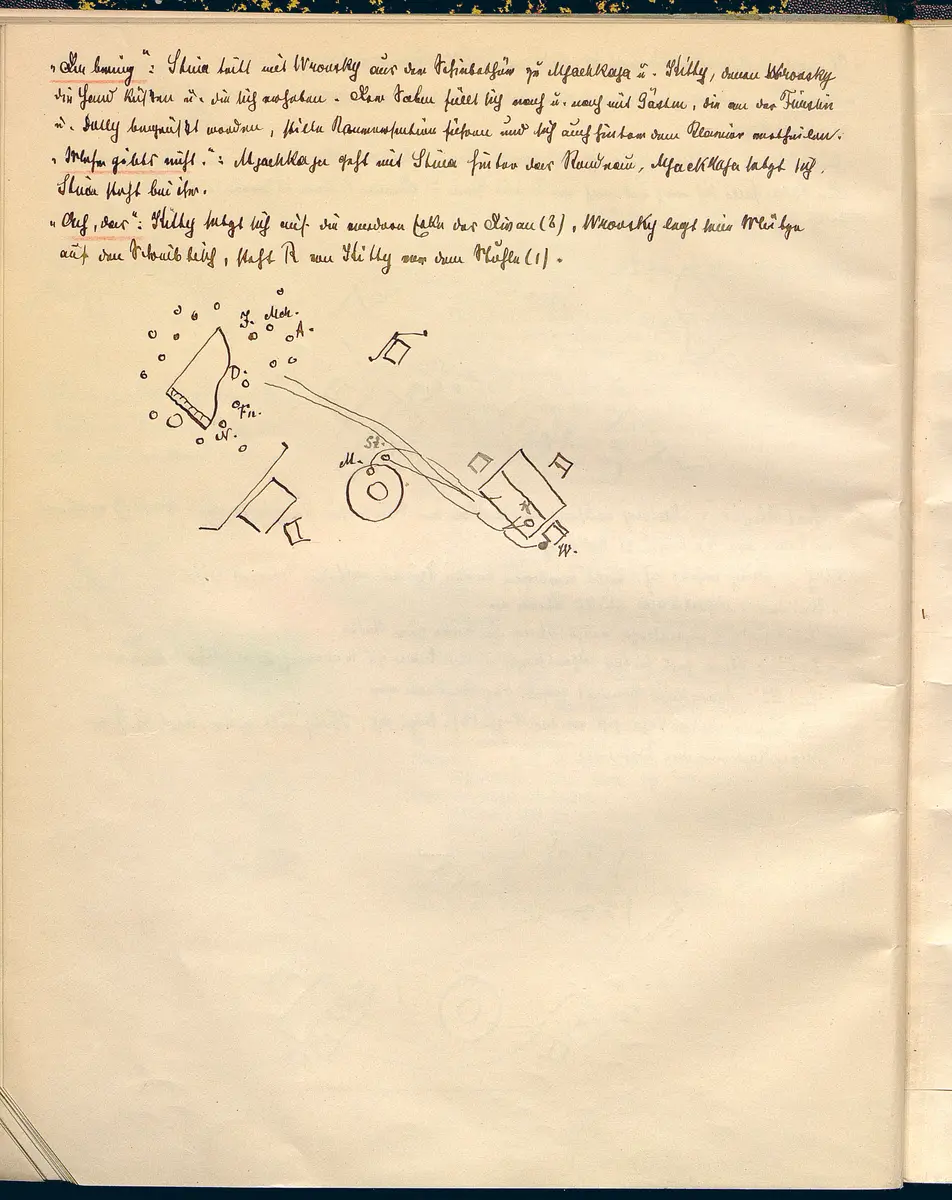 "Ein wenig": Stiva tritt mit Wronsky aus der Schiebethür zu Mjachkaja u. Kitty, denen Wronsky
die Hand küssen u. die sich erheben. Der Salon füllt sich nach u. nach mit Gästen, die von der Fürstin
u. Dolly begrüßt werden, stille Konversation führen und sich auch hinter dem Klavier verteilen.
"Mehr gibts nicht.": Mjachkaja geht mit Stiva hinter das Rondeau, Mjachkaja setzt sich,
Stiva steht bei ihr.
"Ach, das": Kitty setzt sich auf die andere Ecke des Divan (3), Wronsky legt seine Mütze
auf den Schreibtisch, steht R von Kitty vor dem Stuhle (1).
J. Mch.
A.
D.
Fn.
N.
St.
M.
K
W.